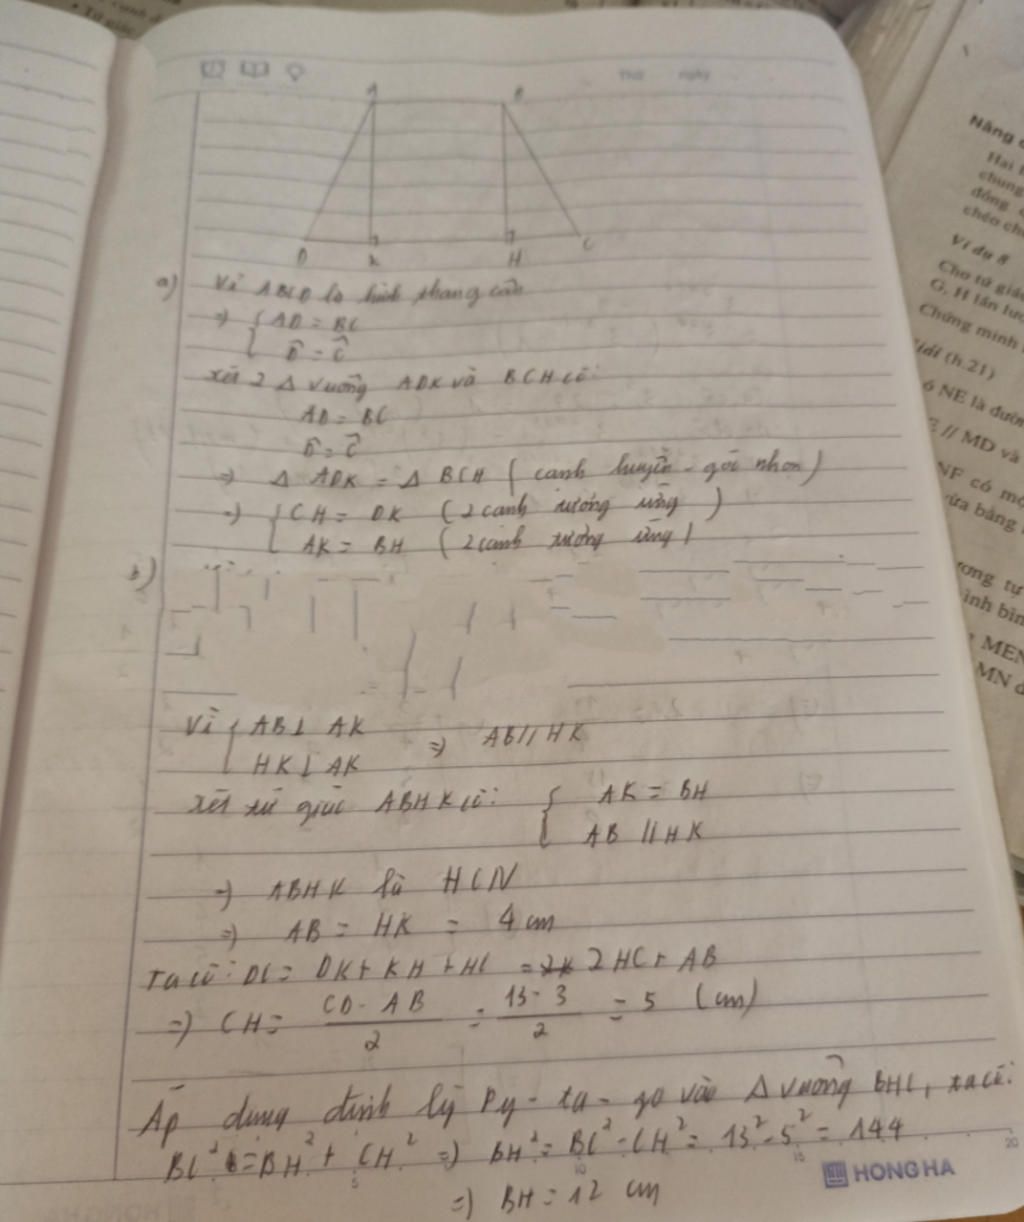 Thứ ngày
A B
D K H C
a) Vì ABCD là hình thang cân
=> { AD = BC
D̂ = Ĉ
xét 2 Δ vuông ADK và BCH có:
AD = BC
D̂ = Ĉ
=> Δ ADK = Δ BCH ( cạnh huyền - góc nhọn )
=> { CH = DK ( 2 cạnh tương ứng )
AK = BH ( 2 cạnh tương ứng )
b)
Vì { AB ⊥ AK
HK ⊥ AK => AB // HK
xét tứ giác ABHK có: { AK = BH
AB // HK
=> ABHK là HCN
=> AB = HK = 4 cm
Ta có: DC = DK + KH + HC = 2HC + AB
=> CH = (CD - AB)/2 = (13 - 3)/2 = 5 (cm)
Áp dụng định lý Py - ta - go vào Δ vuông BHC, ta có:
BC² = BH² + CH² => BH² = BC² - CH² = 13² - 5² = 144
=> BH = 12 cm
5 10 15 20
HONG HA
Nâng
Hai
chung
đồng
chéo
Ví dụ 8
Cho tứ giác
G, H lần lượt
Chứng minh
Giải (h.21)
ó NE là đường
E // MD và
NF có
vừa bằng
ương tự
ình bình
MEN
MN